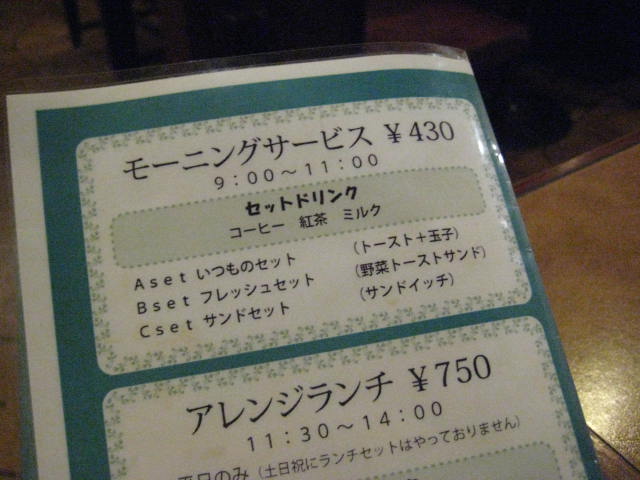 モーニングサービス ￥430
9：00～11：00
セットドリンク
コーヒー 紅茶 ミルク
Aset いつものセット （トースト＋玉子）
Bset フレッシュセット （野菜トーストサンド）
Cset サンドセット （サンドイッチ）
アレンジランチ ￥750
11：30～14：00
平日のみ（土日祝にランチセットはやっておりません）